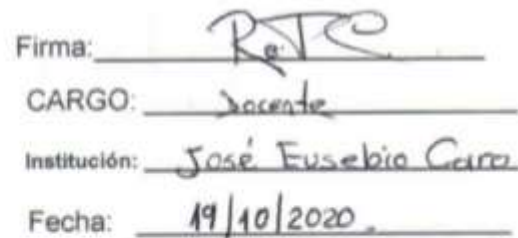 Firma:
CARGO: Docente
Institución: José Eusebio Caro
Fecha: 19/10/2020.